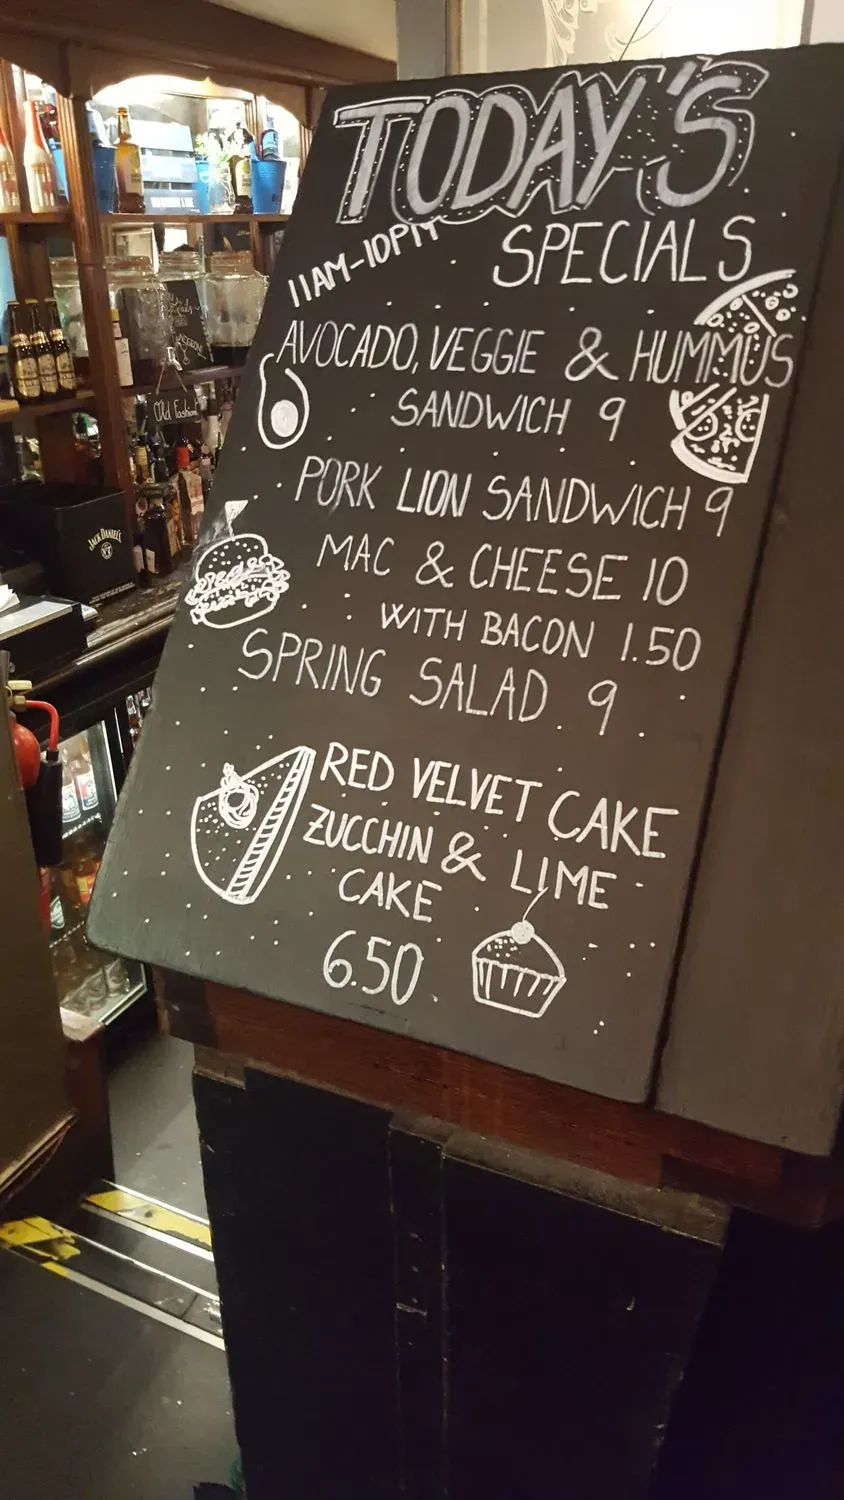 TODAY'S
SPECIALS
11AM-10PM
AVOCADO, VEGGIE & HUMMUS
SANDWICH 9
PORK LION SANDWICH 9
MAC & CHEESE 10
WITH BACON 1.50
SPRING SALAD 9
RED VELVET CAKE
ZUCCHIN & LIME
CAKE
6.50
Old Fashion
JACK DANIEL'S